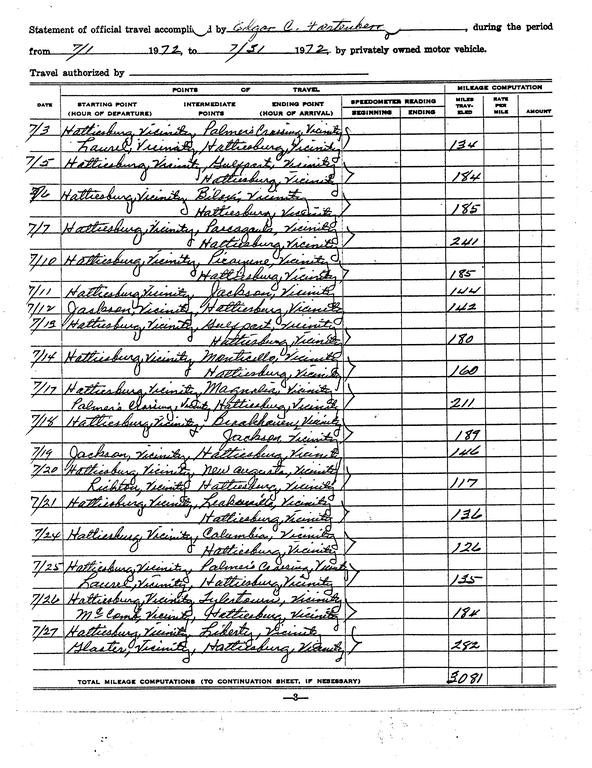 Statement of official travel accomplished by Edgar C. Fortenberry, during the period
from 7/1 1972, to 7/31 1972, by privately owned motor vehicle.
Travel authorized by
POINTS OF TRAVEL MILEAGE COMPUTATION
DATE STARTING POINT (HOUR OF DEPARTURE) INTERMEDIATE POINTS ENDING POINT (HOUR OF ARRIVAL) SPEEDOMETER READING BEGINNING ENDING MILES TRAVELED RATE PER MILE AMOUNT
7/3 Hattiesburg, Vicinity, Palmer's Crossing, Vicinity
Laurel, Vicinity, Hattiesburg, Vicinity 134
7/5 Hattiesburg, Vicinity, Gulfport, Vicinity
Hattiesburg, Vicinity 184
7/6 Hattiesburg, Vicinity, Biloxi, Vicinity
Hattiesburg, Vicinity 185
7/7 Hattiesburg, Vicinity, Pascagoula, Vicinity
Hattiesburg, Vicinity 241
7/10 Hattiesburg, Vicinity, Picayune, Vicinity
Hattiesburg, Vicinity 185
7/11 Hattiesburg, Vicinity, Jackson, Vicinity 144
7/12 Jackson, Vicinity, Hattiesburg, Vicinity 142
7/13 Hattiesburg, Vicinity, Gulfport, Vicinity
Hattiesburg, Vicinity 180
7/14 Hattiesburg, Vicinity, Monticello, Vicinity
Hattiesburg, Vicinity 160
7/17 Hattiesburg, Vicinity, Magnolia, Vicinity
Palmer's Crossing, Vicinity, Hattiesburg, Vicinity 211
7/18 Hattiesburg, Vicinity, Brookhaven, Vicinity
Jackson, Vicinity 189
7/19 Jackson, Vicinity, Hattiesburg, Vicinity 146
7/20 Hattiesburg, Vicinity, New Augusta, Vicinity
Richton, Vicinity, Hattiesburg, Vicinity 117
7/21 Hattiesburg, Vicinity, Leakesville, Vicinity
Hattiesburg, Vicinity 136
7/24 Hattiesburg, Vicinity, Columbia, Vicinity
Hattiesburg, Vicinity 126
7/25 Hattiesburg, Vicinity, Palmer's Crossing, Vicinity
Laurel, Vicinity, Hattiesburg, Vicinity 135
7/26 Hattiesburg, Vicinity, Tylertown, Vicinity
McComb, Vicinity, Hattiesburg, Vicinity 184
7/27 Hattiesburg, Vicinity, Liberty, Vicinity
Gloster, Vicinity, Hattiesburg, Vicinity 282
TOTAL MILEAGE COMPUTATIONS (TO CONTINUATION SHEET, IF NESESSARY) 3081
—3—